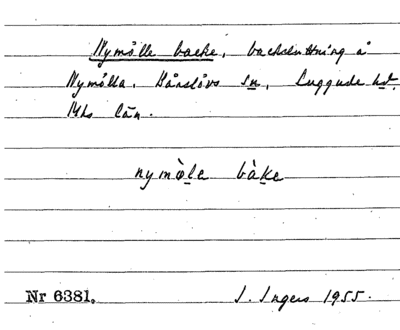 Nymölle backe, backsluttning å
Nymölla, Kårslövs sn, Luggude hd.
Mhs län.
nymø̀le bàke
Nr 6381. I. Ingers 1955.